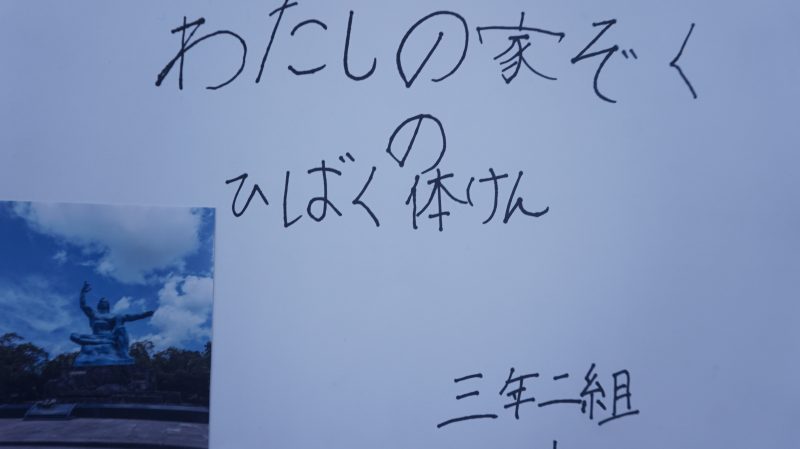 わたしの家ぞく
の
ひばく体けん
三年二組